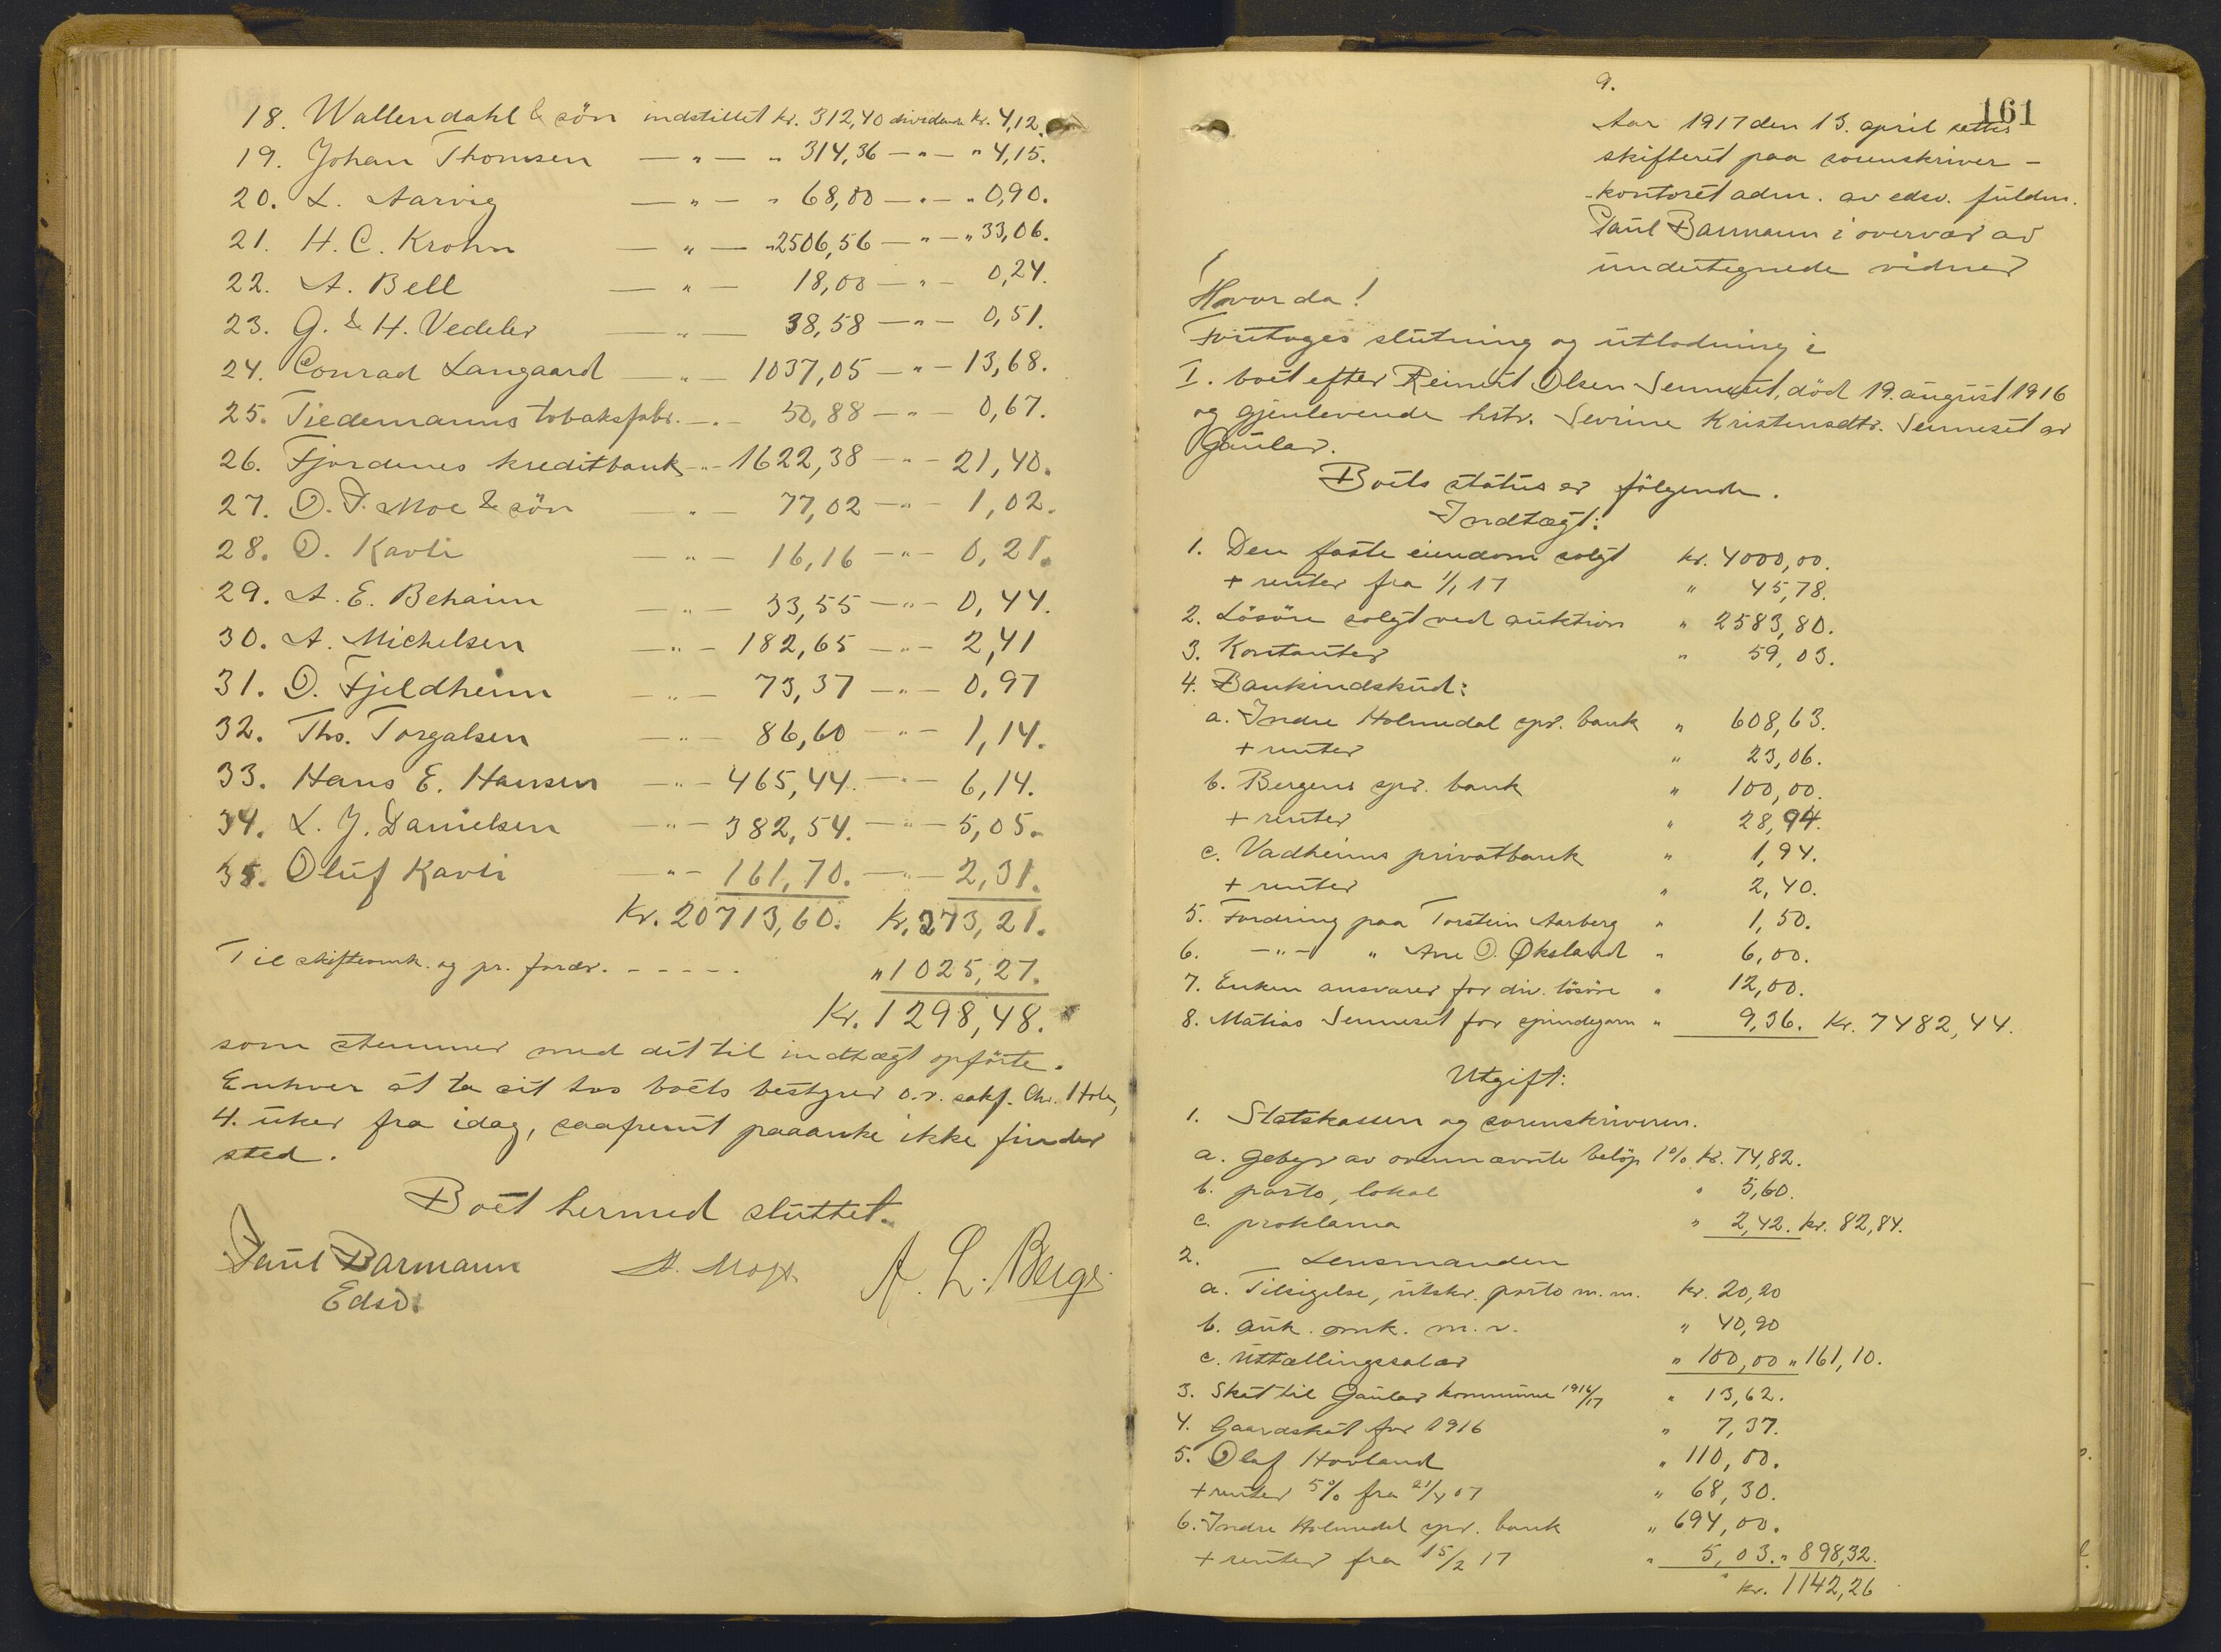 18. Wallendahl & sön indstillet kr. 312,40 dividende kr. 4,12.
19. Johan Thomsen — " — " 314,36 — " — " 4,15.
20. L. Aarvig — " — " 68,00 — " — " 0,90.
21. H. C. Krohn — " — " 2506,56 — " — " 33,06.
22. A. Bell — " — 18,00 — " — 0,24.
23. G. & H. Vedeler — " — 38,58 — " — 0,51.
24. Conrad Langaard — " — 1037,05 — " — 13,68.
25. Tiedemanns tobaksfabr. — " — 50,88 — " — 0,67.
26. Fjordenes kreditbank — " — 1622,38 — " — 21,40.
27. O. F. Moe & sön — " — 77,02 — " — 1,02.
28. O. Kavli — " — 16,16 — " — 0,21.
29. A. E. Behaim — " — 33,55 — " — 0,44.
30. A. Michelsen — " — 182,65 — " — 2,41
31. O. Fjeldheim — " — 73,37 — " — 0,97
32. Ths. Torgalsen — " — 86,60 — " — 1,14.
33. Hans E. Hansen — " — 465,44. — " — 6,14.
34. L. J. Danielsen — " — 382,54. — " — 5,05.
35. Oluf Kavli — " — 161,70. — " — 2,31.
Kr. 20713,60. Kr. 273,21.
Til skifteomk. og pr. fordr. - - - - - " 1025,27.
Kr. 1298,48.
som stemmer med det til indtægt opförte.
Enhver at ta sit hos boets bestyrer o.r. sakf. Chr. Hole,
4. uker fra idag, saafremt paaanke ikke finder
sted.
Boet hermed sluttet.
Paul Barmann A. L. Berge
Edsv.
161
9.
Aar 1917 den 13. april sattes
skifteret paa sorenskriver-
-kontoret adm. av edsv. fuldm.
Paul Barmann i overvær av
undertegnede vidner
Hvorda!
Foretoges slutning og utlodning i
I. boet efter Reinert Olsen Senneset, död 19. august 1916
og gjenlevende hstr. Sevrine Kristensdtr. Senneset av
Gaular.
Boets status er følgende.
Indtægt:
1. Den faste eiendom solgt kr. 4000,00.
+ renter fra 1/1 17 " 45,78.
2. Lösöre solgt ved auktion " 2583,80.
3. Kontanter " 59,03.
4. Bankindskud:
a. Indre Holmedal spr. bank " 608,63.
+ renter " 23,06.
b. Bergens spr. bank " 100,00.
+ renter " 28,94.
c. Vadheims privatbank " 1,94.
+ renter " 2,40.
5. Fordring paa Torstein Aarberg " 1,50.
6. — " — " Ane O. Øksland " 6,00.
7. Enken ansvarer for div. lösöre " 12,00.
8. Matias Senneset for spindegarn " 9,36. Kr. 7482,44.
Utgift:
1. Statskassen og sorenskriveren.
a. Gebyr av ovennævnte belöp 1% kr. 74,82.
b. porto, lokal " 5,60.
c. proklama " 2,42. kr. 82,84.
2. Lensmanden
a. Tilsigelse, utskr. porto m. m. kr. 20,20
b. auk. omk. m. v. " 40,90
c. Utfællingssalær " 100,00 " 161,10.
3. Skat til Gaular kommune 1916/17 " 13,62.
4. Gaardskat for 1916 " 7,37.
5. Olaf Hovland " 110,00.
+ renter 5% fra 21/4 07 " 68,30.
6. Indre Holmedal spr. bank " 694,00.
+ renter fra 15/2 17 " 5,03. " 898,32.
kr. 1142,26